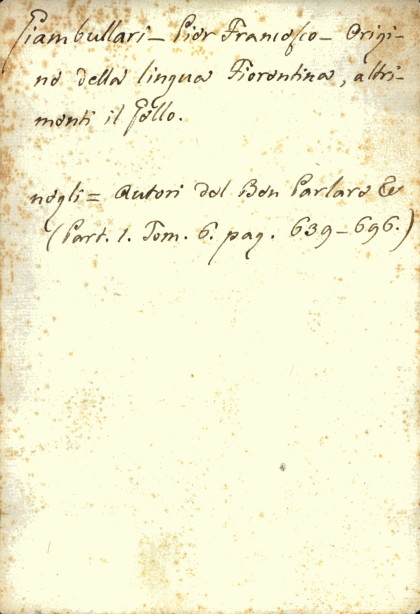 Giambullari – Pier Francesco – Origi-
ne della lingua Fiorentina, altri-
menti il Gello.
negli = Autori del Ben Parlare &
(Part. 1. Tom. 6. pag. 639–696.)